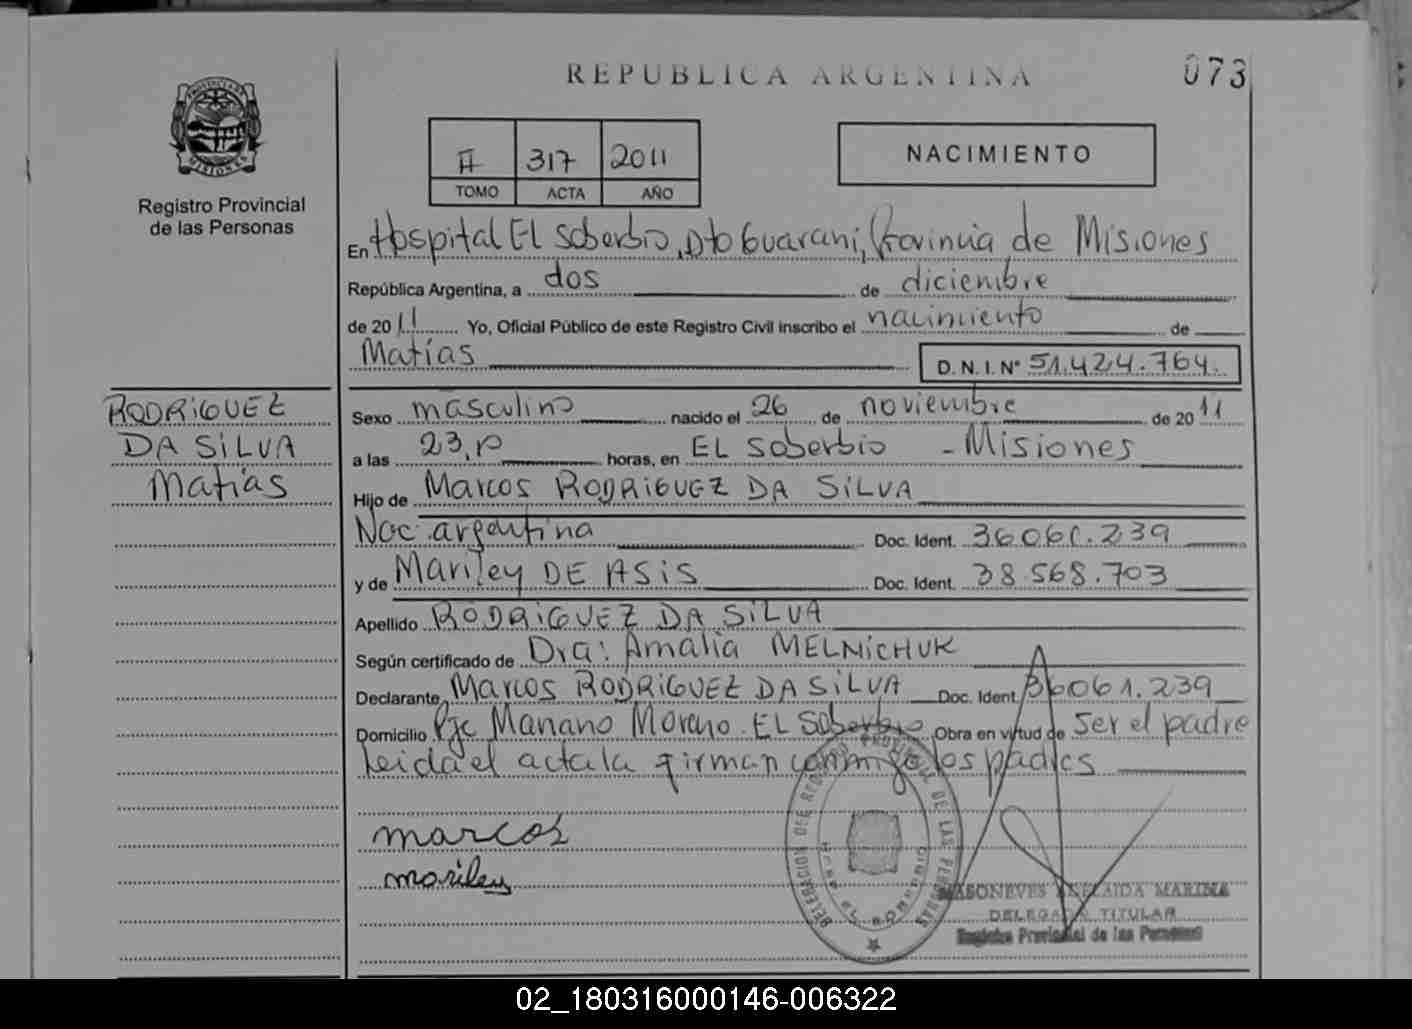 REPUBLICA ARGENTINA
073
PROVINCIA DE
MISIONES
Registro Provincial
de las Personas
II 317 2011
TOMO ACTA AÑO
NACIMIENTO
En Hospital EL Soberbio, Dto Guarani, Provincia de Misiones
República Argentina, a dos de diciembre
de 2011 Yo, Oficial Público de este Registro Civil inscribo el nacimiento de
Matías D.N.I. Nº 51.424.764.
RODRIGUEZ
DA SILVA
Matías
Sexo masculino nacido el 26 de noviembre de 2011
a las 23, horas, en EL Soberbio - Misiones
Hijo de Marcos RODRIGUEZ DA SILVA
Nac. argentina Doc. Ident. 36061.239
y de Mariley DE ASIS Doc. Ident. 38568.703
Apellido RODRIGUEZ DA SILVA
Según certificado de Dra: Amalia MELNICHUK
Declarante Marcos RODRIGUEZ DA SILVA Doc. Ident. 36061.239
Domicilio Pje Mariano Moreno EL Soberbio Obra en virtud de ser el padre
Leida el acta la firman conmigo los padres
marcos
mariley
DELEGACION DEL REGISTRO PROVINCIAL DE LAS PERSONAS
EL SOBERBIO
MARINA
DELEGADA TITULAR
Registro Provincial de las Personas
02_180316000146-006322